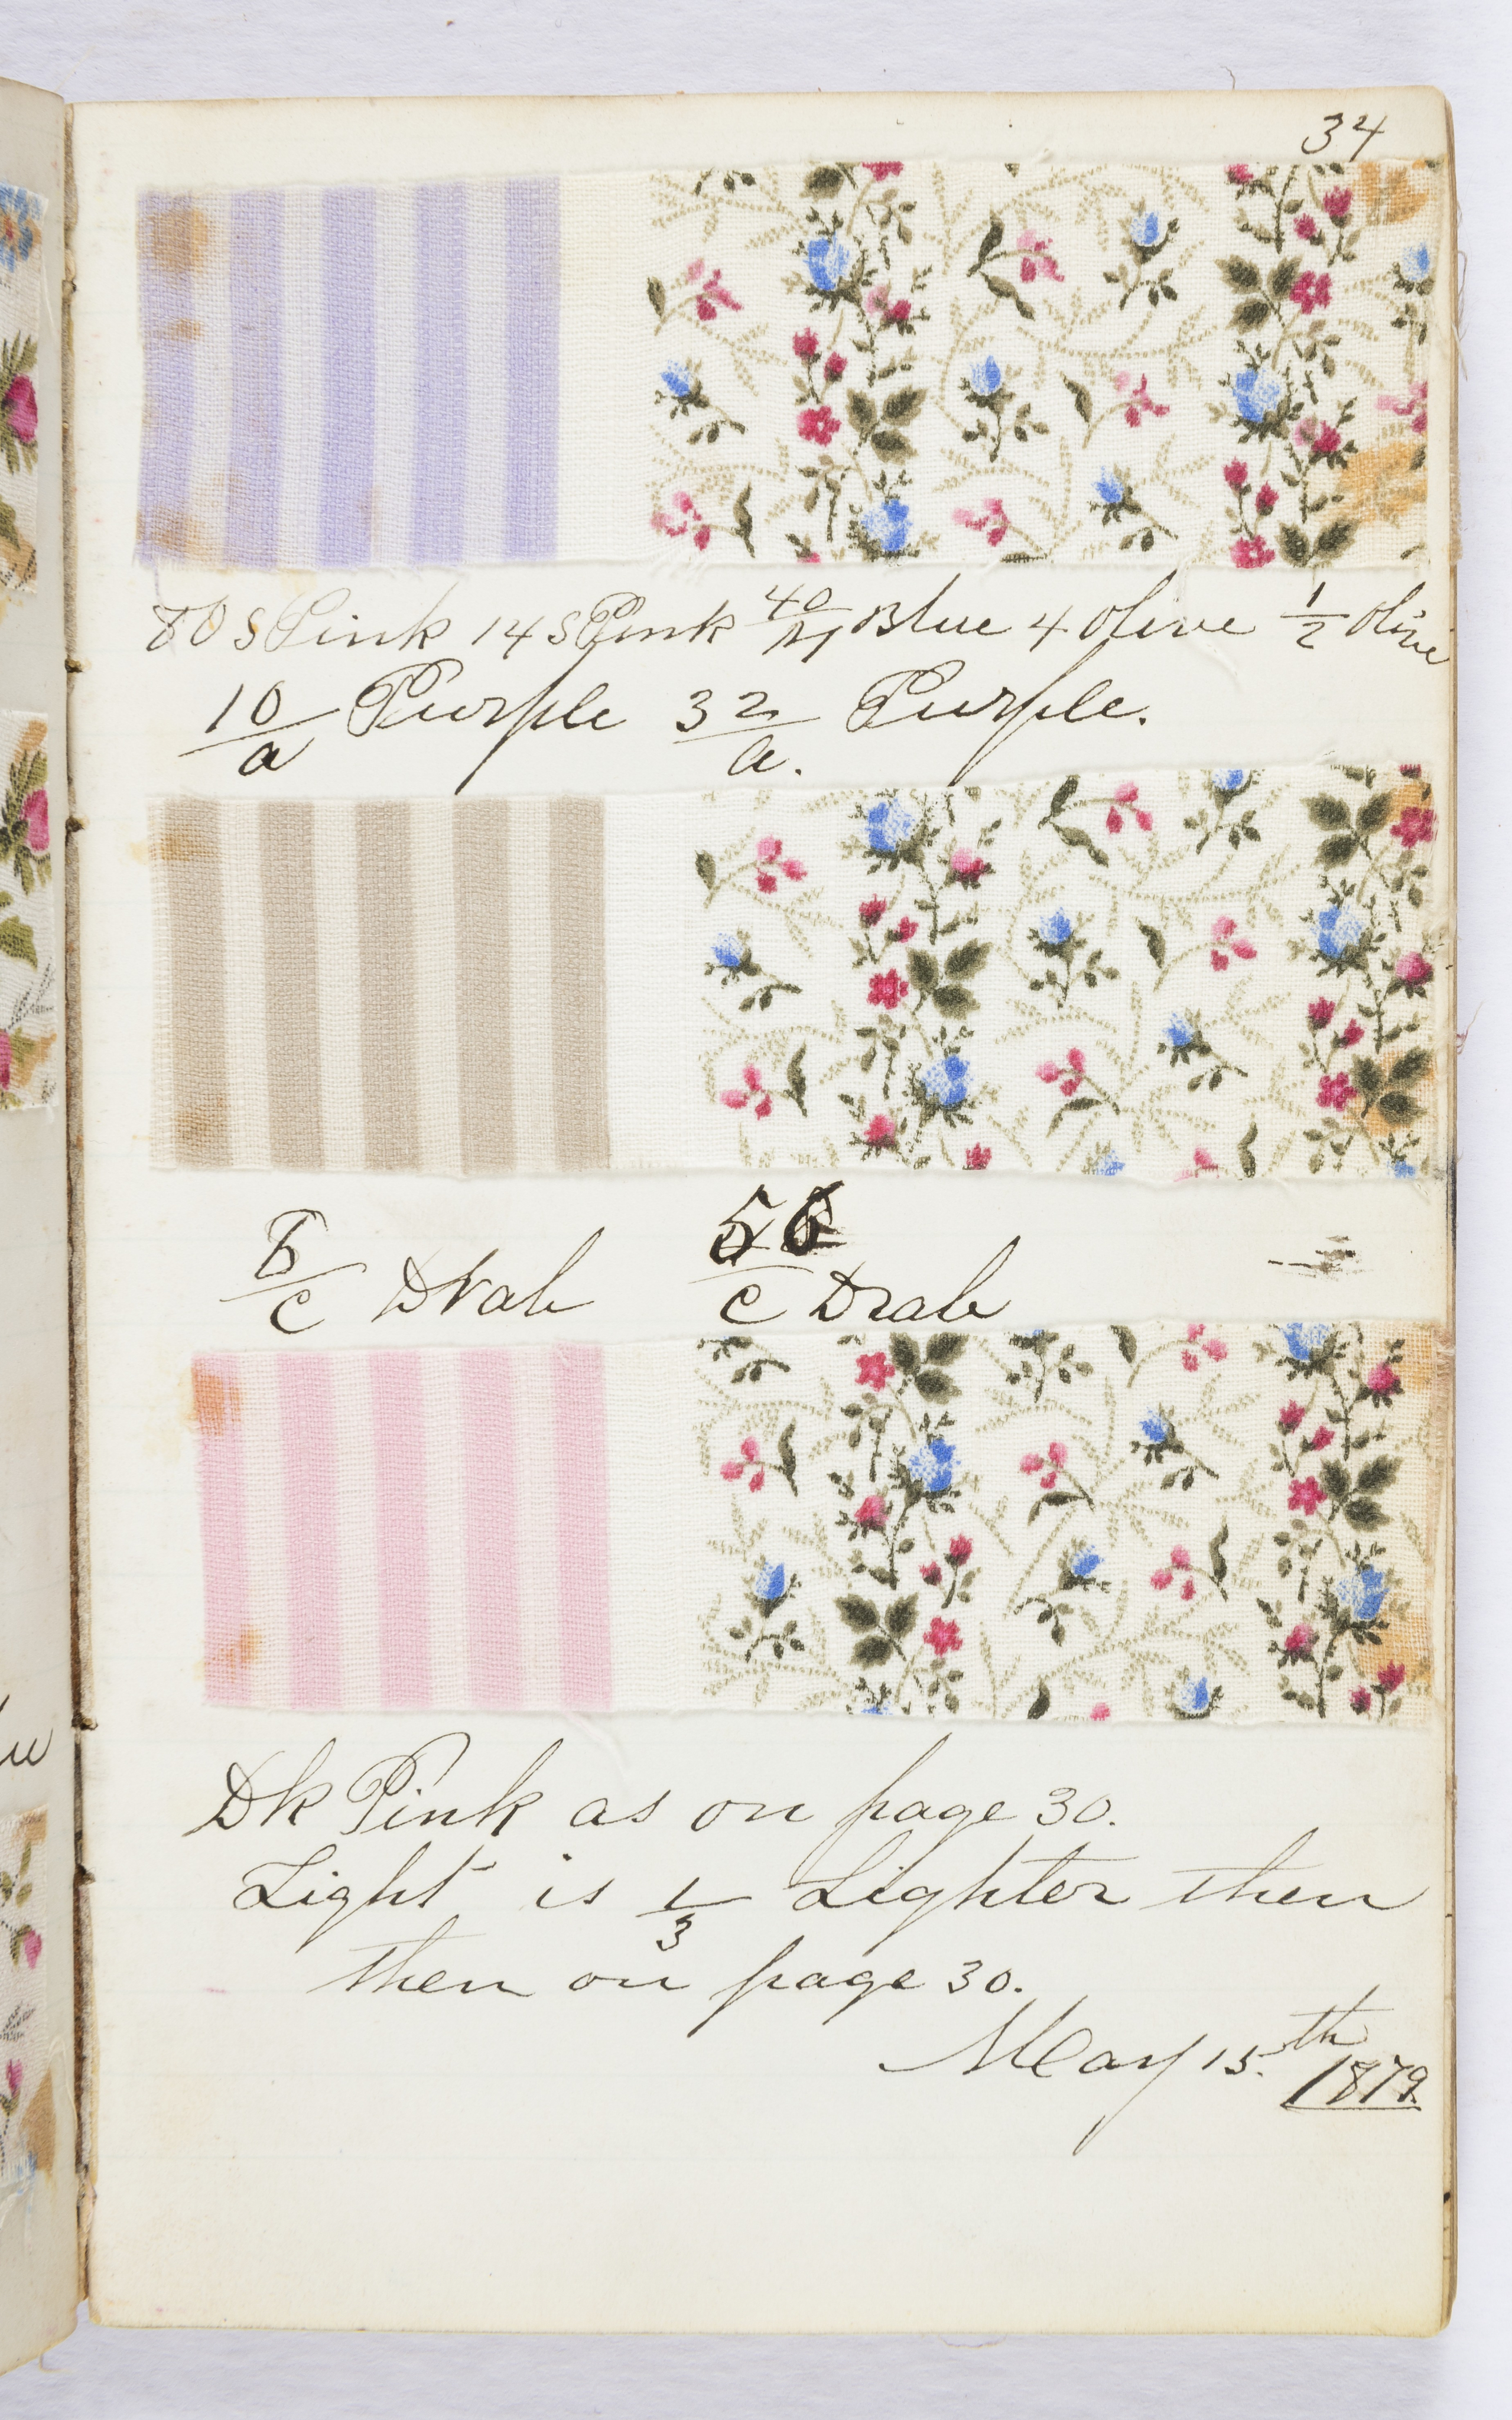 34
80 S Pink 14 S Pink 40/M Blue 4 Olive 1/2 Olive
10/a Purple 32/a. Purple.
/c Drab 56/c Drab
Dk Pink as on page 30.
Light is 1/3 Lighter then
then on page 30.
May 15.th 1879